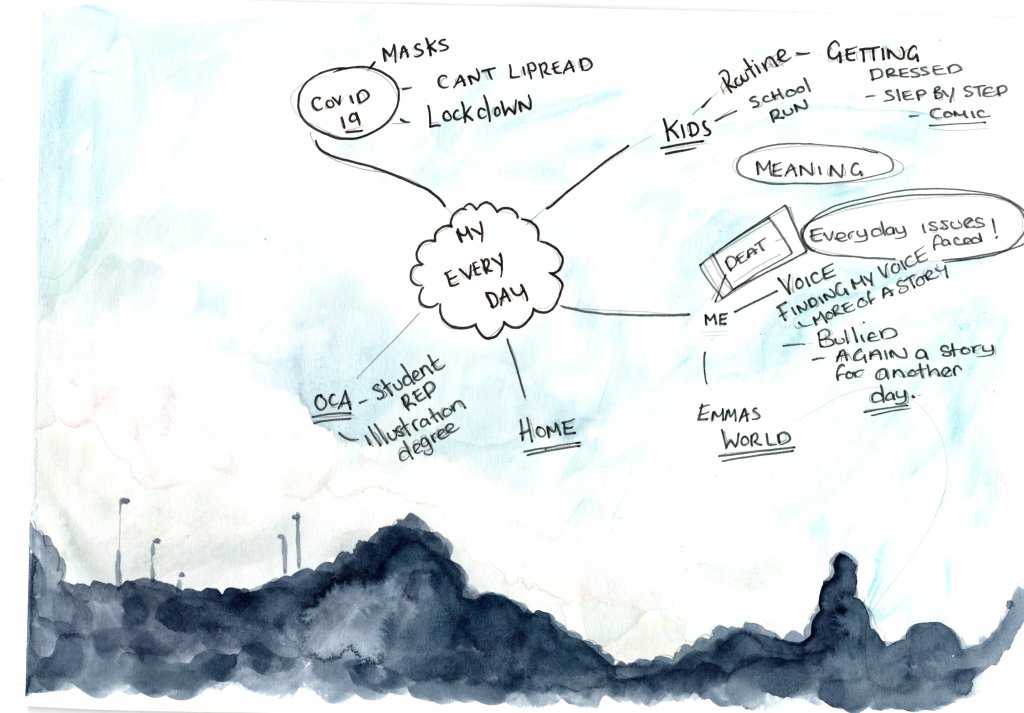 MASKS
CANT LIPREAD
COVID
19
Lockdown
Routine - GETTING
DRESSED
- STEP BY STEP
- COMIC
- SCHOOL
RUN
KIDS
MEANING
Everyday issues!
faced!
DEAF
MY
EVERY
DAY
ME
VOICE
FINDING MY VOICE
MORE OF A STORY
- Bullied
- AGAIN a story
for another
day.
EMMAS
WORLD
HOME
OCA - Student
REP
- Illustration
degree